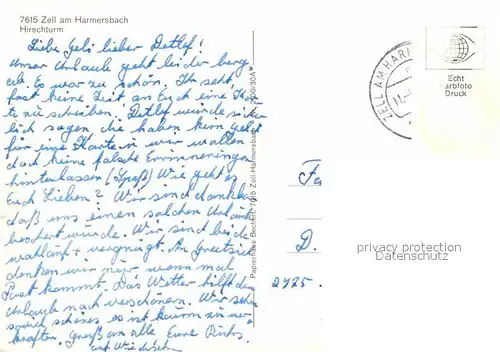 7615 Zell am Harmersbach
Hirschturm
Liebe Geli lieber Detlef!
Unser Urlaub geht leider berg
ab. Es war zu schön. Ihr seht,
fast keine Zeit an Euch eine Kar
te zu schreiben. Detlef würde sicher
lich sagen, die haben kein Geld
für eine Karte wir wollen
doch keine falsche Erinnerungen
hinterlassen (Spaß) Wie geht es
Euch Lieben? Wir sind dankbar
daß uns einen solchen Urlaub
beschert würde. Wir sind beide
wohlauf + vergnügt. An
denken wir nur wenn mal
Post kommt. Das Wetter hilft den
Urlaub noch verschönern. Wir sehen
soviel schönes es ist kaum zu ver
kraften. Gruß an alle Eure
auf Wiedersehn
Papierhaus 7615 Zell-Harmersbach
ZELL AM HARM
Echt
arbfoto
Druck
Fa
D.
2975.
privacy protection
Datenschutz